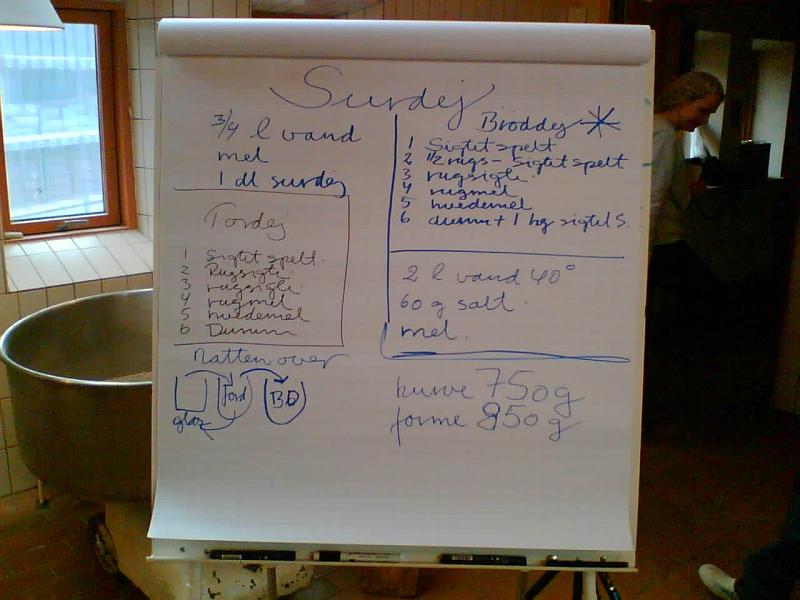 Surdej
3/4 l vand
mel
1 dl surdej
Fordej
1 Sigtet spelt.
2 Rugsigte.
3 rugsigte.
4 rugmel
5 hvedemel
6 Durum
Natten over
glas
Ford
BD
Brøddej
1 Sigtet spelt
2 1/2 rugs - sigtet spelt
3 rugsigte.
4 rugmel
5 hvedemel
6 durum + 1 kg sigtet S.
2 l vand 40°
60 g salt.
mel.
kurve 750g
forme 850g